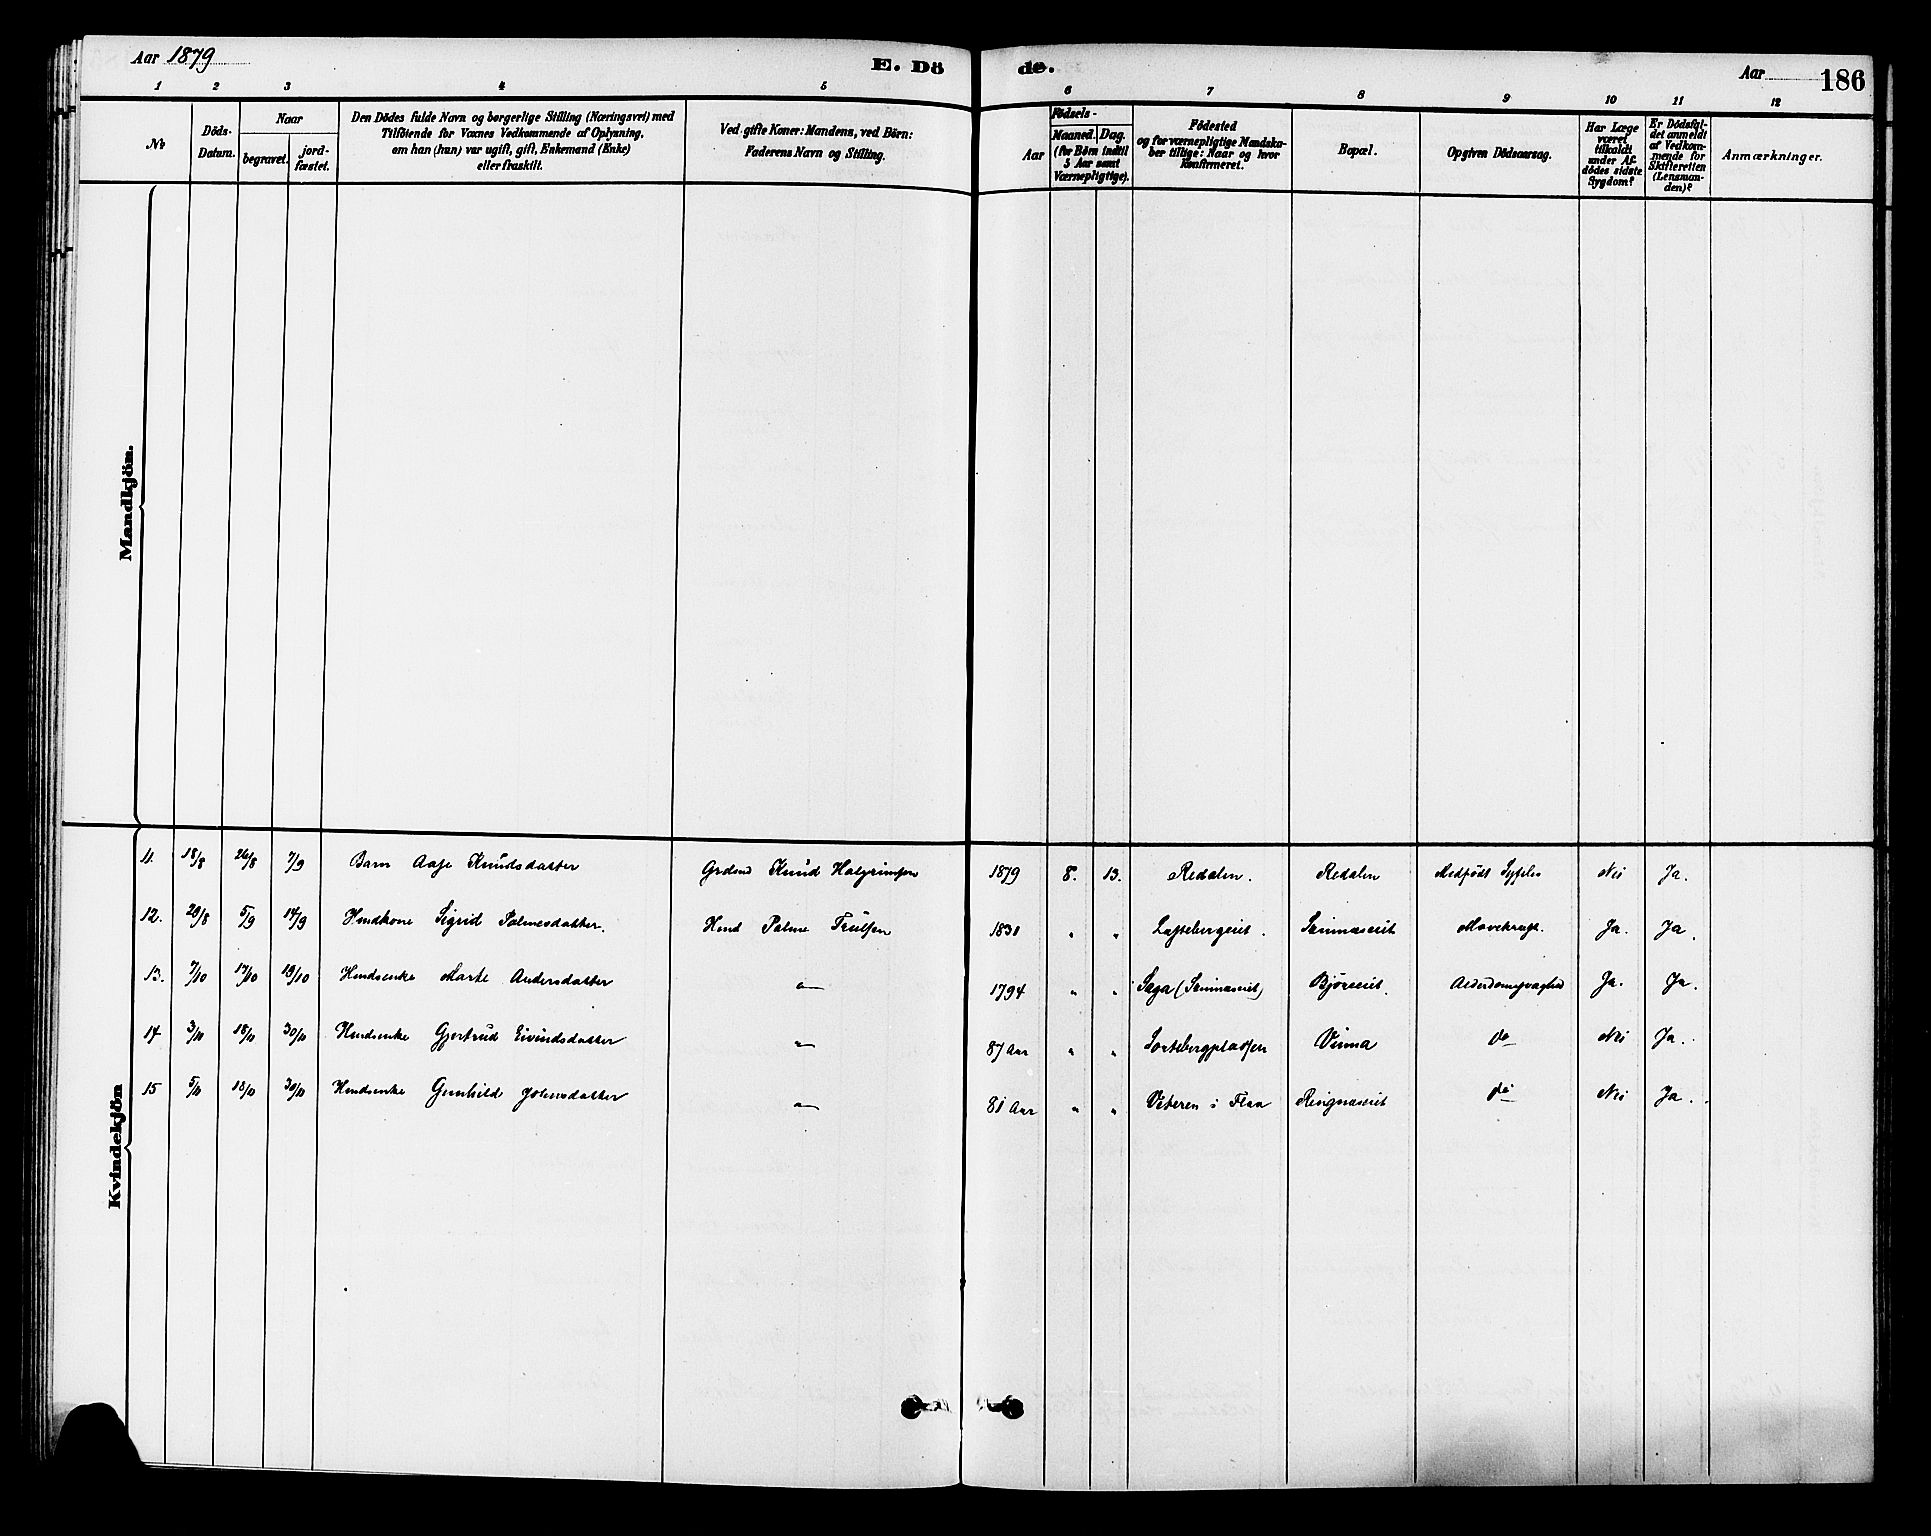 Aar 1879
E. Dö
de.
Aar 186
1 2 3 4 5 6 7 8 9 10 11 12
No
Döds-
Datum.
Naar
begravet.
jord-
fæstet.
Den Dödes fulde Navn og borgerlige Stilling (Næringsvei) med
Tilföiende for Voxnes Vedkommende af Oplysning,
om han (hun) var ugift, gift, Enkemand (Enke)
eller fraskilt.
Ved gifte Koner: Mandens, ved Börn:
Faderens Navn og Stilling.
Födsels-
Aar
Maaned. Dag.
(for Börn indtil
5 Aar samt
Værnepligtige).
Födested
og for værnepligtige Mandska-
ber tillige: Naar og hvor
konfirmeret.
Bopæl.
Opgiven Dödsaarsag.
Har Læge
været
tilkaldt
under Af-
dödes sidste
Sygdom?
Er Dödsfal-
det anmeldt
af Vedkom-
mende for
Skifteretten
(Lensman-
den)?
Anmærkninger.
Mandkjön.
Kvindekjön
11. 18/8 26/8 7/9 Barn Aase Knudsdatter Grdmd Knud Halgrimsen 1879 8. 13. Redalen. Redalen Medfödt Syfilis Nei Ja.
12. 28/8 5/9 14/9 Hmdkone Sigrid Palmesdatter. Hmd Palme Trulsen 1831 " " . Ja. Ja.
13. 7/10 17/10 19/10 Hmdsenke Marte Andersdatter — 1794 " " Saga Björeeiet. Alderdomsvaghed Ja. Ja.
14 3/11 18/11 30/11 Hmdsenke Gjertrud Eivindsdatter — 87 Aar " " Virma do Nei Ja.
15 5/11 18/11 30/11 Hmdsenke Gunhild — 81 Aar " " i Flaa Ringnæseiet do Nei Ja.